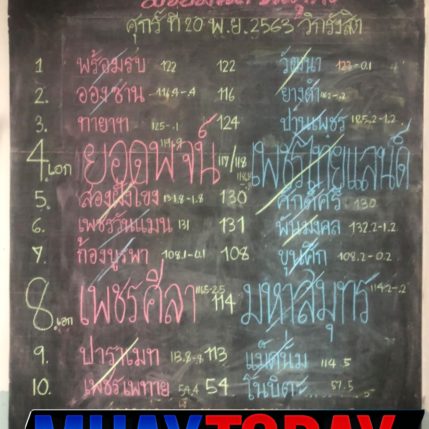 ศุกร์ ที่ 20 พ.ย. 2563 วิกรังสิต
1 พร้อมรบ 122 122 วัฒนา 123-0.1
2. อองซาน 114.4-.4 116 ยางดำ
3. ทายาท 125-.1 124 ป่านเพชร 125.2-1.2
4.เอก ยอดพจน์ 117/118 เพชรไทยแลนด์
5. สองฝั่งโขง 131.8-1.8 130 ศักดิ์ศรี 130
6. เพชรวันแมน 131 131 พันมงคล 132.2-1.2
7. ก้องบูรพา 108.1-0.1 108 ขุนศึก 108.2-0.2
8.เอก เพชรศีลา 114 มหาสมุทร 114.2-.2
9. ปาราเมท 113 แม็ดนั่ม 114.5
10. เพชรเพทาย 54.4 54 โนบิตะ 57.5
MUAYTODAY